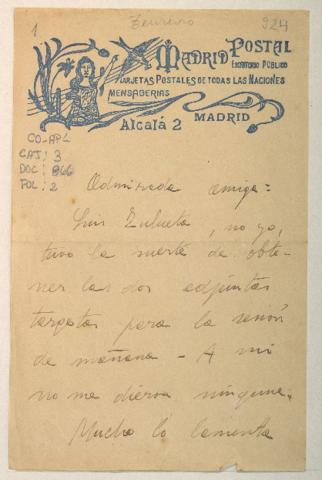 1 Febrero 924
MADRID POSTAL
ESCRITORIO PÚBLICO
TARJETAS POSTALES DE TODAS LAS NACIONES
MENSAGERIAS
Alcalá 2 MADRID
CO-AP/
CAJ: 3
DOC: 866
FOL: 2
Admirada amiga:
Luis Zulueta, no yo,
tuvo la suerte de obte-
ner las dos adjuntas
targetas para la sesión
de mañana - A mi
no me dieron ninguna.
Mucho lo lamenta